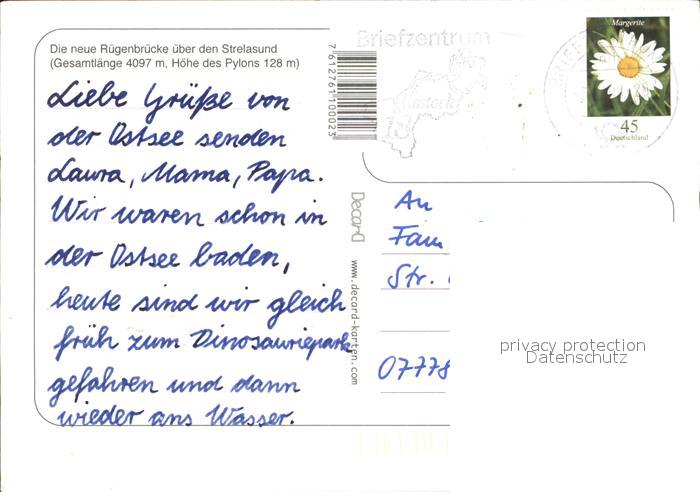 Die neue Rügenbrücke über den Strelasund
(Gesamtlänge 4097 m, Höhe des Pylons 128 m)
Liebe Grüße von
der Ostsee senden
Laura, Mama, Papa.
Wir waren schon in
der Ostsee baden,
heute sind wir gleich
früh zum Dinosaurierpark
gefahren und dann
wieder ans Wasser.
7612761100023
DecarD
www.decard-karten.com
Briefzentrum
Rostock
18
Margerite
45
Deutschland
An
Fam
Str.
07778
privacy protection
Datenschutz